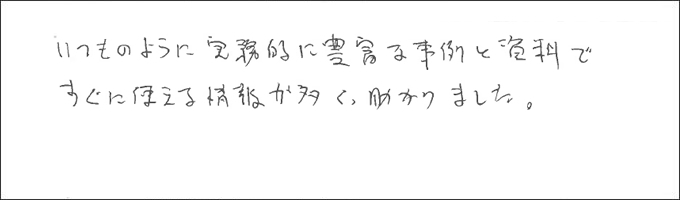 いつものように実務的に豊富な事例と資料で
すぐに使える情報が多く、助かりました。